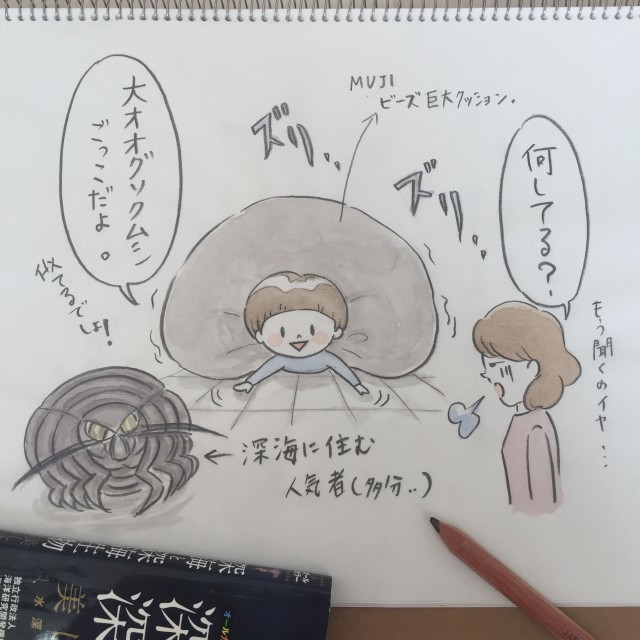 大オオグソクムシ
ごっこだよ。
似てるでしょ!
ズリ、、、
MUJI
ビーズ巨大クッション。
ズリ、、、
何してる?
もう聞くのイヤ…
←深海に住む
人気者(多分‥)
深海と深海生物
美し
深
独立行政法人